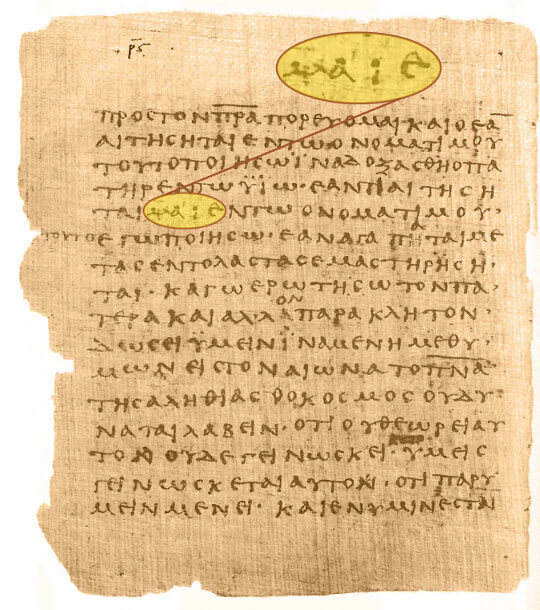 ρϛ
μαι ε
ΠΡΟϹΤΟΝΠ̅Ρ̅Α̅ΠΟΡΕΥΟΜΑΙΚΑΙΟΕΑ̅
ΑΙΤΗϹΗΤΑΙΕΝΤΩΟΝΟΜΑΤΙΜΟΥ
ΤΟΥΤΟΠΟΙΗϹΩΪΝΑΔΟΞΑϹΘΗΟΠΑ
ΤΗΡΕΝΤΩΫΪΩ·ΕΑΝΤΙΑΙΤΗϹΗ
ΤΑΙΜΑΙΕΝΤΩΟΝΟΜΑΤΙΜΟΥ·
ΤΟΥΤΟ ΕΓΩΠΟΙΗϹΩ·ΕΑΝΑΓΑΠΑΤΑΙΜΕ
ΤΑϹΕΝΤΟΛΑϹΤΑϹΕΜΑϹΤΗΡΗϹΗ·
ΤΑΙ·ΚΑΓΩΕΡΩΤΗϹΩΤΟΝΠΑ·
ΤΕΡΑΚΑΙΑΛΛΟΝΠΑΡΑΚΛΗΤΟΝ·
ΔΩϹΕΙΫΜΕΙΝΪΝΑΜΕΝΗΜΕΘΥ·
ΜΩΝΕΙϹΤΟΝΑΙΩΝΑΤΟΠ̅Ν̅Α̅
ΤΗϹΑΛΗΘΙΑϹΘΟΚΟϹΜΟϹΟΥΔΥ
ΝΑΤΑΙΛΑΒΕΙΝ·ΟΤΙΟΥΘΕΩΡΕΙΑΥ
ΤΟΝΟΥΔΕΓΕΙΝΩϹΚΕΙ·ΥΜΕΙϹ
ΓΕΙΝΩϹΚΕΤΑΙΑΥΤΟΝ·ΟΤΙΠΑΡΥ
ΜΕΙΝΜΕΝΕΙ·ΚΑΙΕΝΥΜΙΝΕϹΤΑΙ